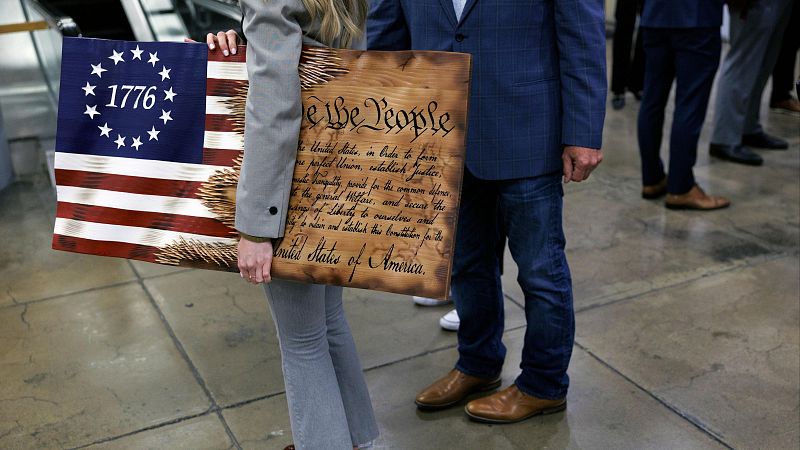 1776
We the People
the United States, in Order to form
more perfect Union, establish Justice,
tranquility, provide for the common defence,
the general Welfare, and secure the
of Liberty to ourselves and
to ordain and establish this Constitution for the
United States of America.